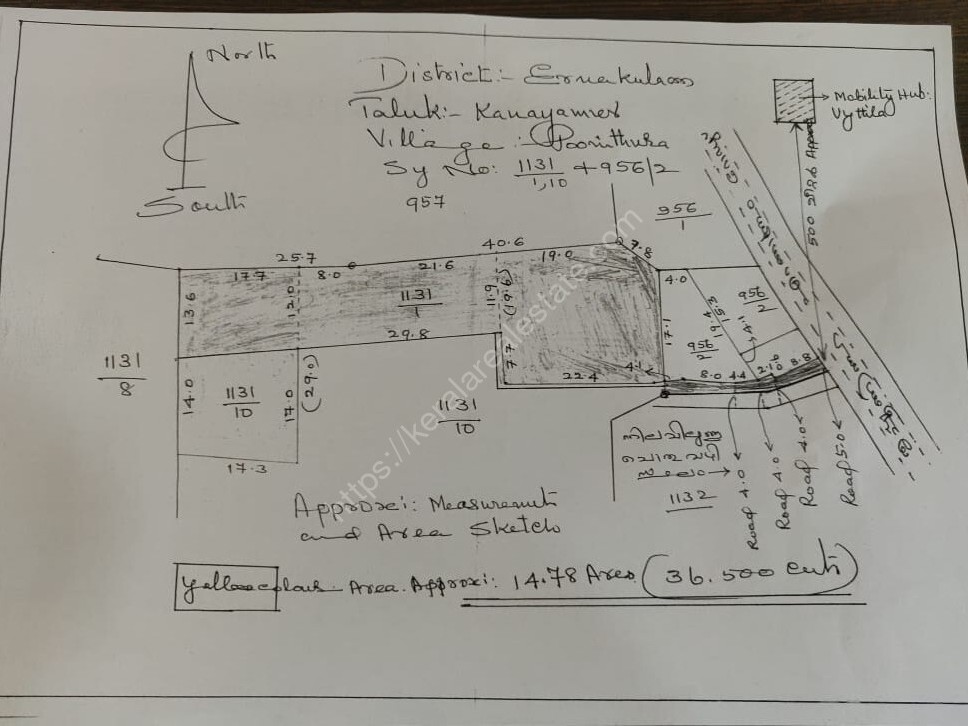 North
District:- Ernakulam
Taluk:- Kanayannur
Village:- Poonithura
Sy No: 1131/1,10 + 956/2
957
South
Mobility Hub:
Vyttila
500 മീറ്റർ Approx
956/1
25.7
40.6
7.8
17.7
8.0
21.6
19.0
4.0
13.6
12.0
1131/1
11.9
(19.6)
17.1
19.4
15.3
956/2
4.1
956/2
29.8
7.7
22.4
4.1
8.0
4.4
2.1
8.8
1131/8
14.0
1131/10
17.0
(29.0)
1131/10
17.3
നിലവിലുള്ള
പൊതുവഴി
സ്ഥലം
1132
Road 4.0
Road 4.0
Road 4.0
Road 5.0
Approxi: Measurement
and Area Sketch
Area Approxi: 14.78 Ares (36.500 cent)
https://keralarealestate.com